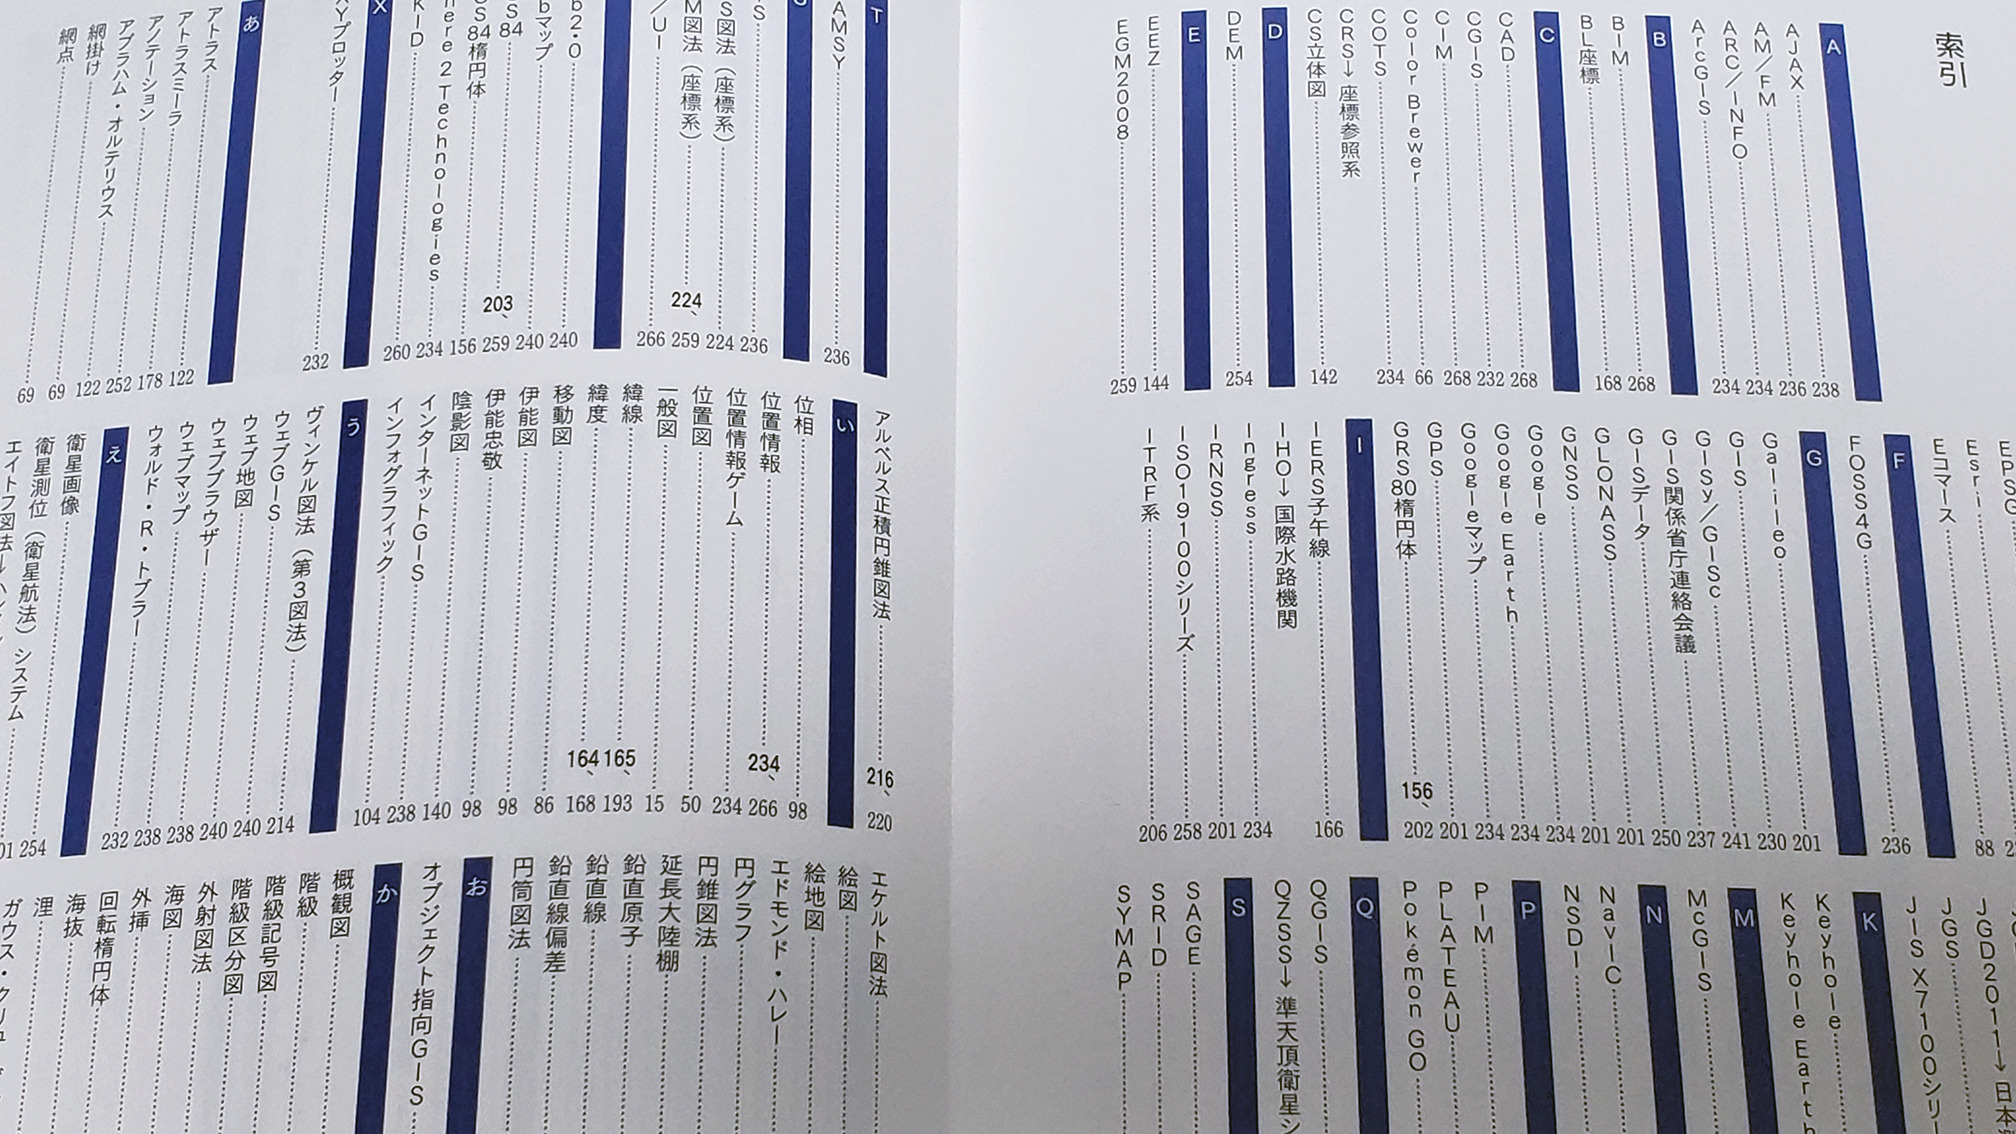 索引
A
AJAX 238
AM/FM 236
ARC/INFO 234
ArcGIS 234
B
BIM 268
BL座標 168
C
CAD 268
CGIS 232
CIM 268
Color Brewer 66
COTS 234
CRS→座標参照系
CS立体図 142
D
DEM 254
E
EEZ 144
EGM2008 259
Esri
Eコマース 88
F
FOSS4G 236
G
Galileo 201
GIS 230
GISy/GISc 241
GIS関係省庁連絡会議 237
GISデータ 250
GLONASS 201
GNSS 201
Google 234
Google Earth 234
Googleマップ 234
GPS 201
GRS80楕円体 156、202
I
IERS子午線 166
IHO→国際水路機関
Ingress 234
IRNSS 201
ISO19100シリーズ 258
ITRF系 206
JGD2011→日本
JGS
JIS X7100シリ
K
Keyhole
Keyhole Earth
M
McGIS
N
NavIC
NSDI
P
PIM
PLATEAU
Pokémon GO
Q
QGIS
QZSS→準天頂衛星シ
S
SAGE
SRID
SYMAP
T
AMSY 236
S 236
S図法（座標系） 224
M図法（座標系） 224、259
/UI 266
b2.0 240
bマップ 240
S84 203、259
S84楕円体 156
here 2 Technologies 234
KID 260
X
XYプロッター 232
あ
アトラス 122
アトラスミーラ 178
アノテーション 252
アブラハム・オルテリウス 122
網掛け 69
網点 69
アルベルス正積円錐図法 216、220
い
位相 98
位置情報 234、266
位置情報ゲーム 234
位置図 50
一般図 15
緯線 165、193
緯度 164、168
移動図 86
伊能図 98
伊能忠敬 98
陰影図 140
インターネットGIS 238
インフォグラフィック 104
う
ヴィンケル図法（第3図法） 214
ウェブGIS 240
ウェブ地図 240
ウェブブラウザー 238
ウェブマップ 238
ウォルド・R・トブラー 232
え
衛星画像 254
衛星測位（衛星航法）システム
エケルト図法
絵図
絵地図
エドモンド・ハレー
円グラフ
円錐図法
延長大陸棚
鉛直原子
鉛直線
鉛直線偏差
円筒図法
お
オブジェクト指向GIS
か
概観図
階級
階級記号図
階級区分図
外射図法
海図
外挿
回転楕円体
海抜
浬